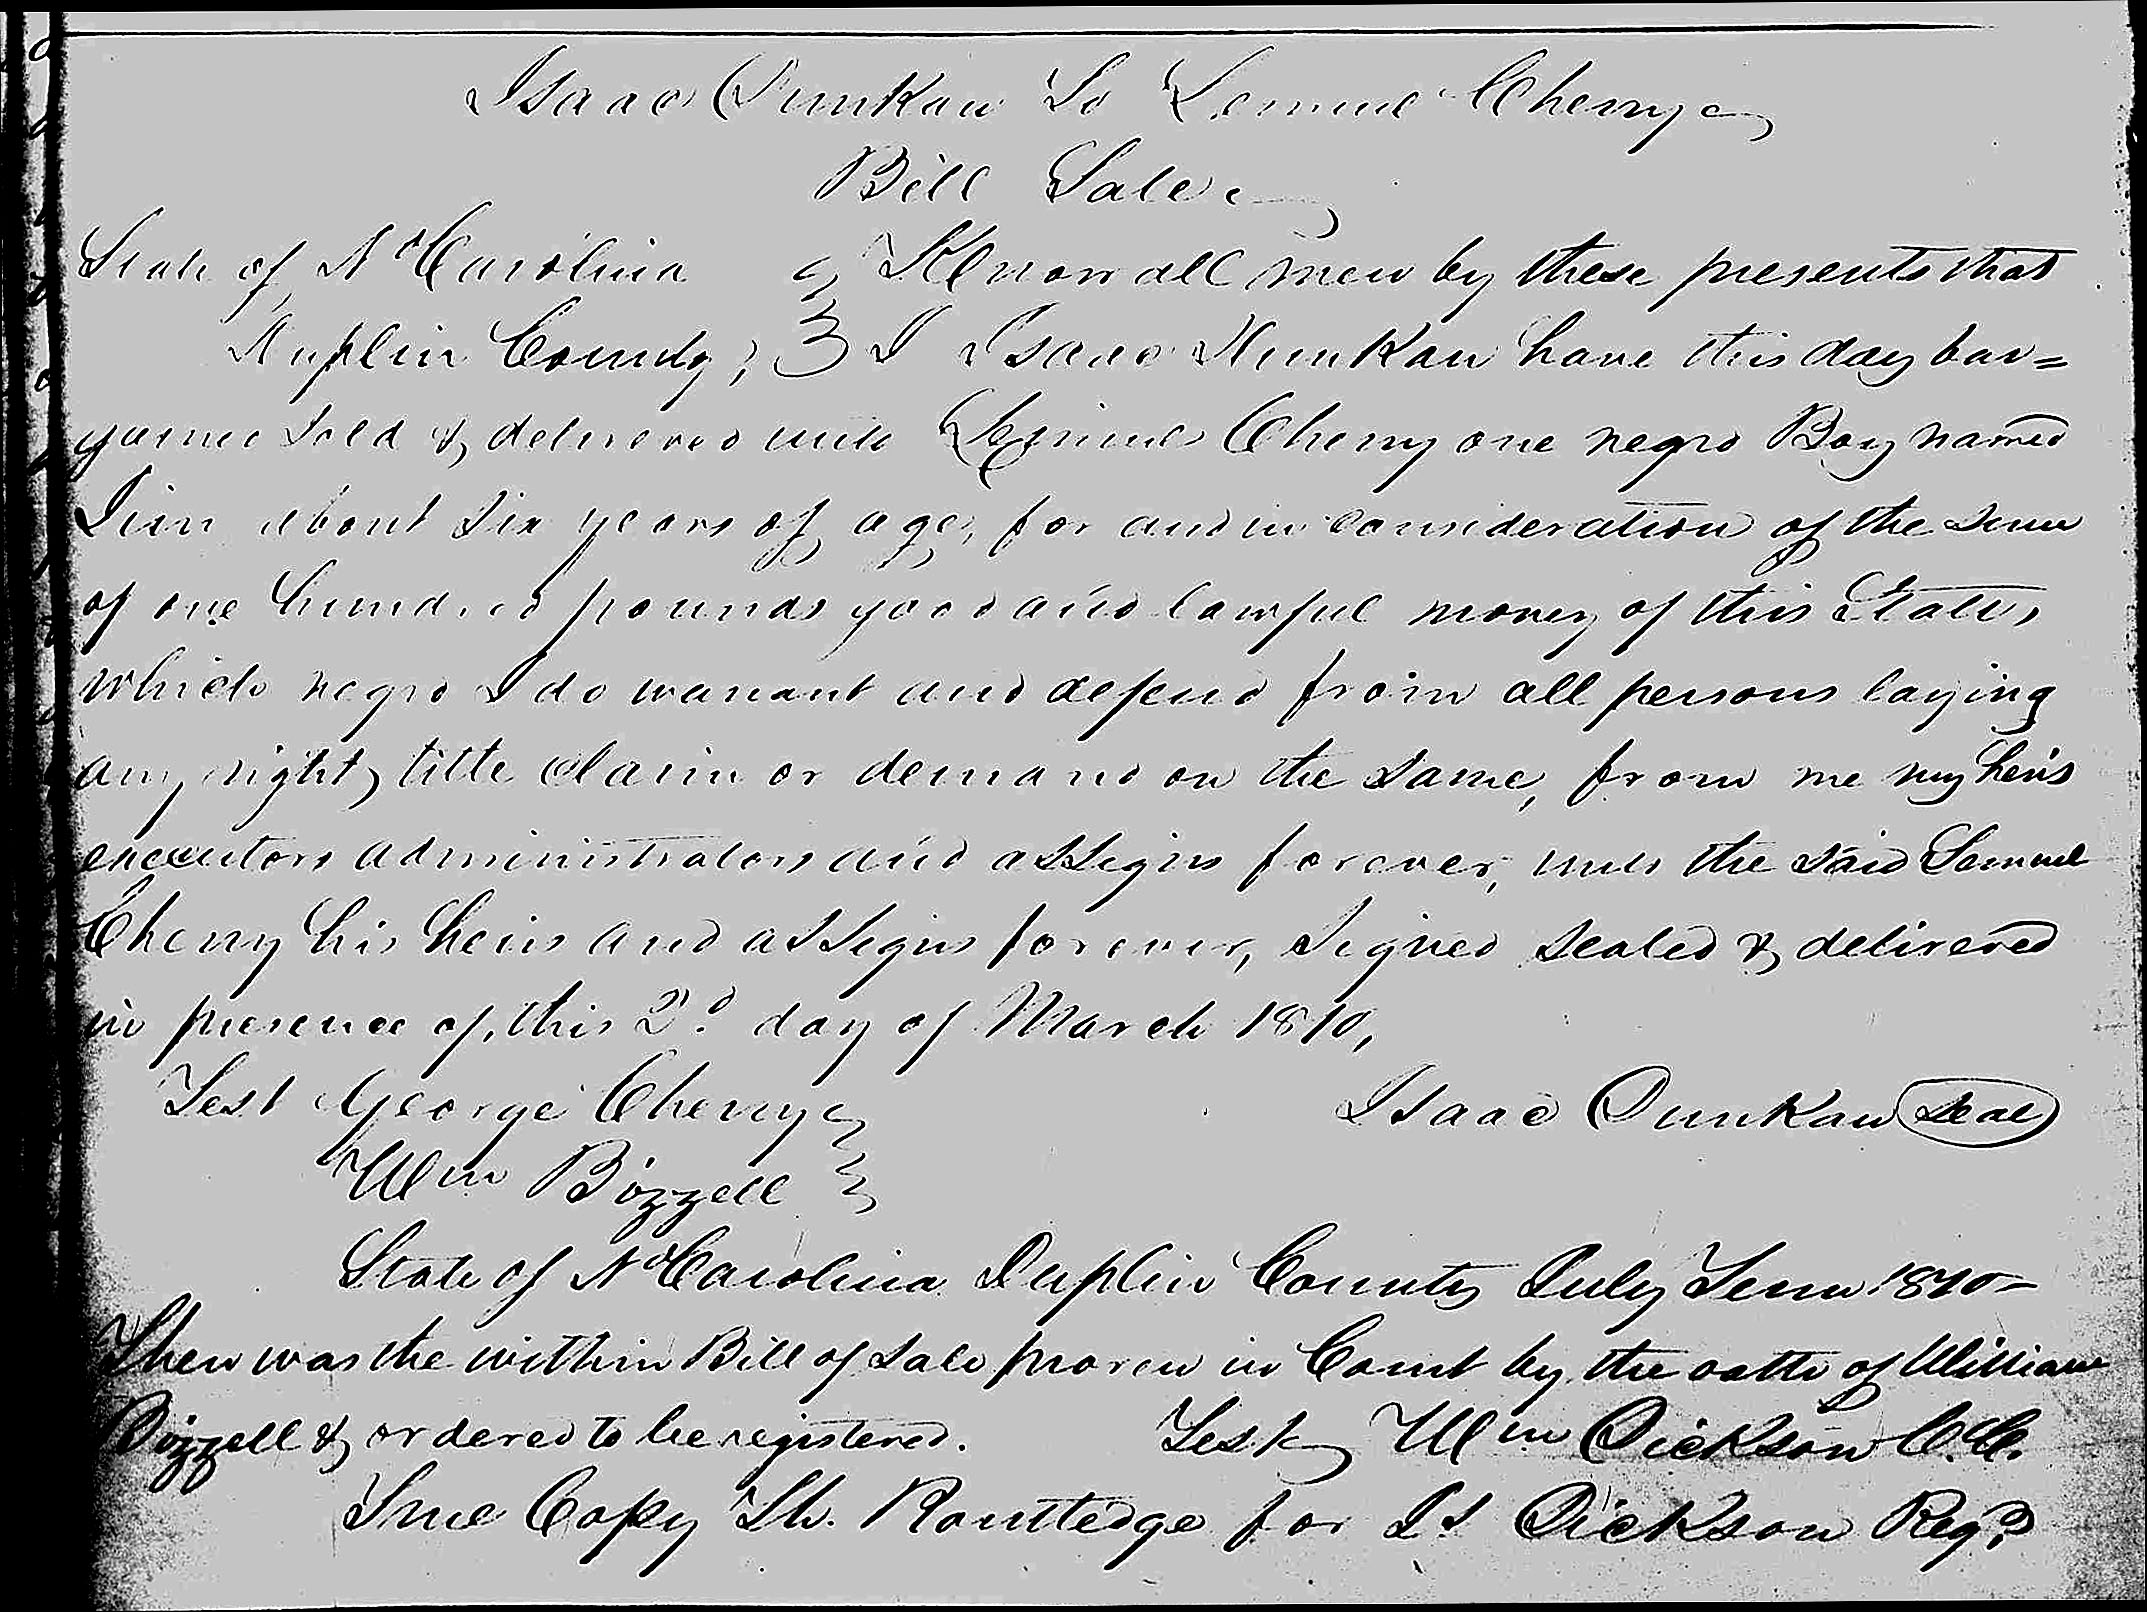 Isaac Dunkan To Lemuel Cherry
Bill Sale
State of No Carolina } Know all men by these presents that
Duplin County; } I Isaac Dunkan have this day bar=
gained Sold & delivered unto Lemuel Cherry one negro Boy named
Jim about Six years of age, for and in consideration of the sum
of one hundred pounds good and lawful money of this State,
which negro I do warrant and defend from all persons laying
any right, title claim or demand on the same, from me my heirs
executors administrators and assigns forever, unto the said Lemuel
Cherry his heirs and assigns forever, Signed sealed & delivered
in presence of, this 2d day of March 1810,
Test George Cherry } Isaac Dunkan Seal
Wm Bizzell }
State of No Carolina Duplin County July Term 1810-
Then was the within Bill of Sale proven in Court by the oath of William
Bizzell & ordered to be registered. Test Wm Dickson C.C.
True Copy Th. Routledge for Js Dickson Regr